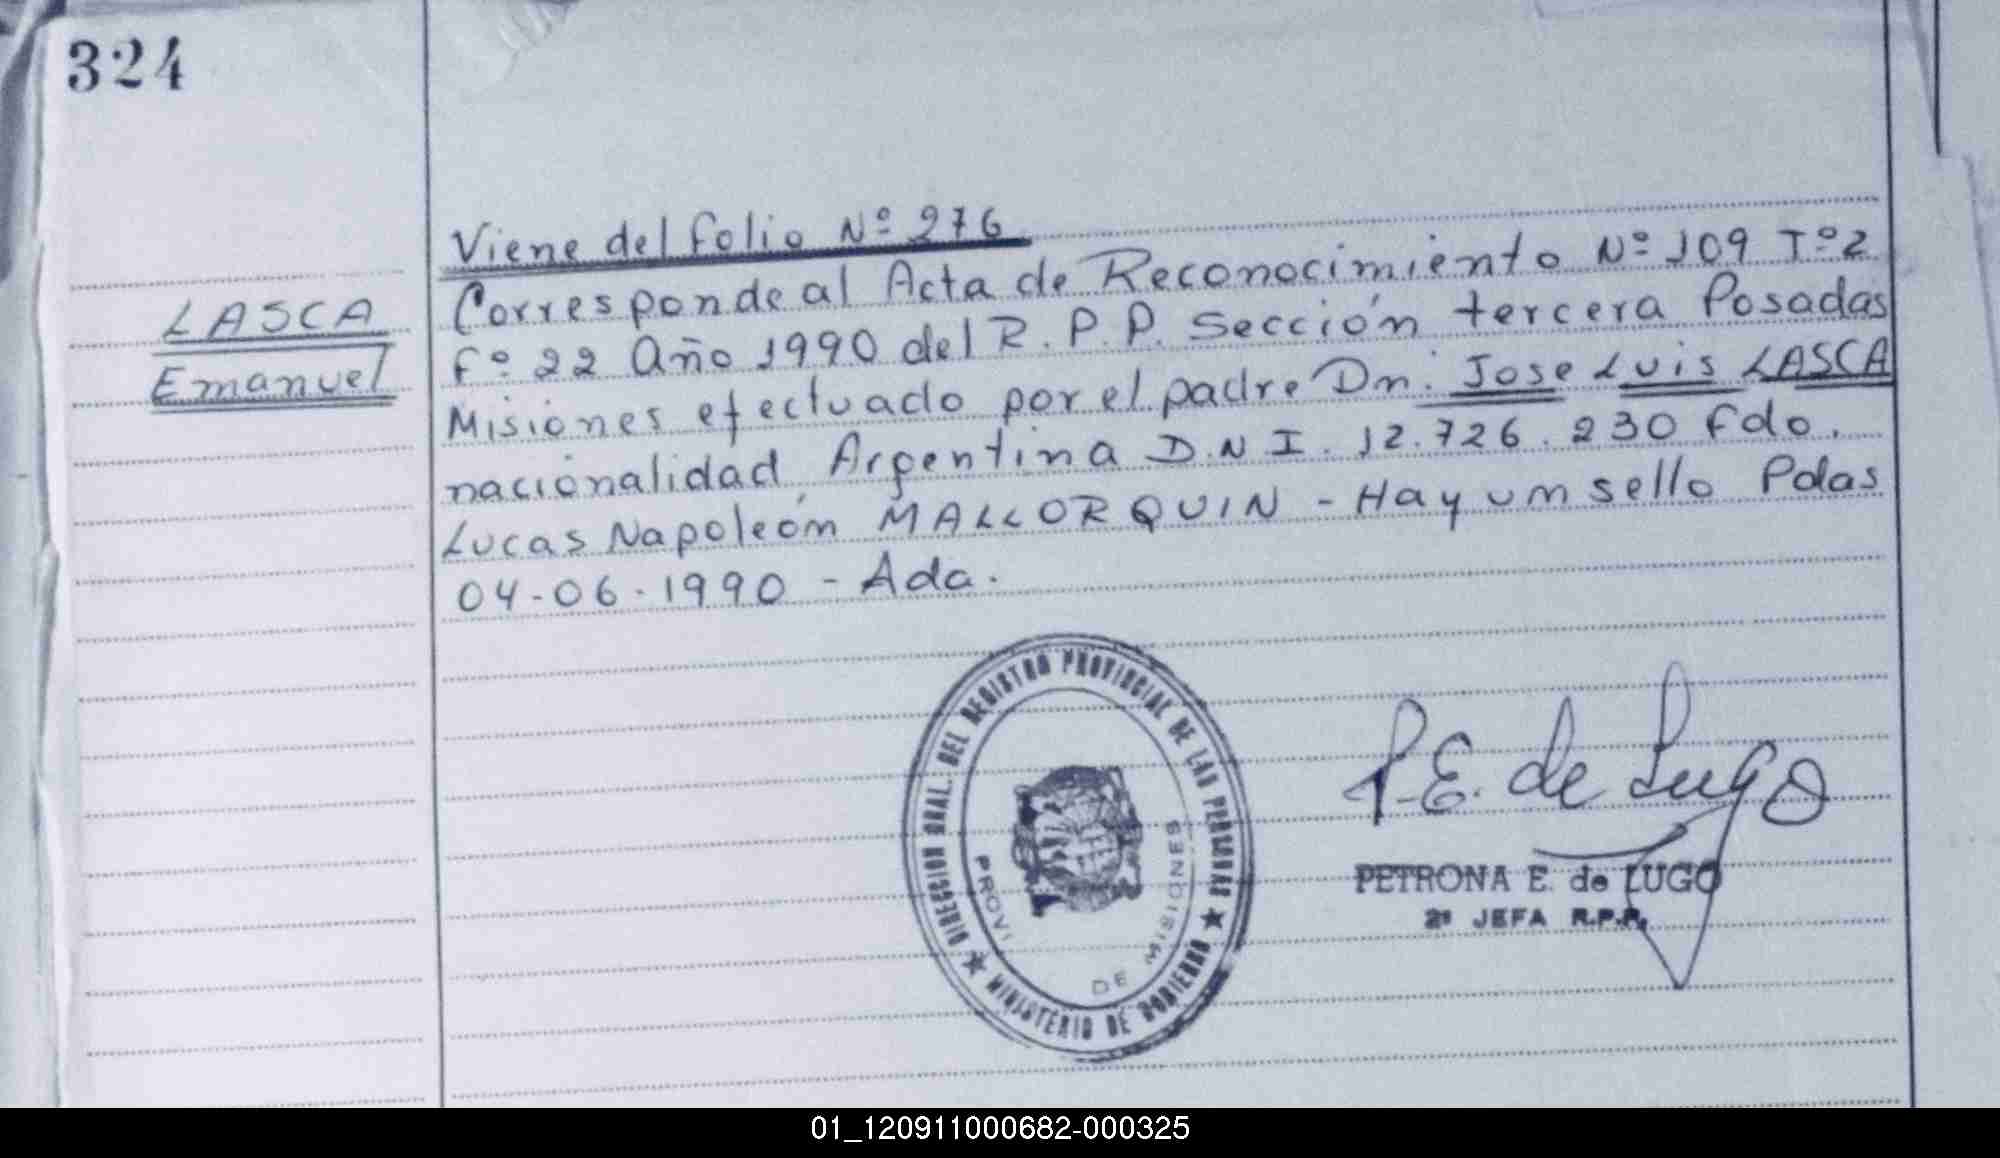 324
LASCA
Emanuel
Viene del folio Nº 276
Corresponde al Acta de Reconocimiento Nº 109 Tº 2
Fº 22 Año 1990 del R. P. P. Sección tercera Posadas
Misiones efectuado por el padre Dn. Jose Luis LASCA
nacionalidad Argentina D.N.I. 12.726.230 Fdo.
Lucas Napoleón MALLORQUIN - Hay un sello Pdas
04-06-1990 - Ada.
DIRECCION GRAL. DEL REGISTRO PROVINCIAL DE LAS PERSONAS
★ MINISTERIO DE GOBIERNO ★
PROVI
DE MISIONES
P.E. de Lugo
PETRONA E. de LUGO
2ª JEFA R.P.P.
01_120911000682-000325